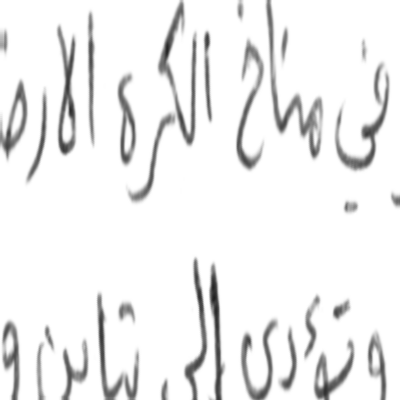 في مناخ الكرة الارض
وتؤدى إلى تباين و